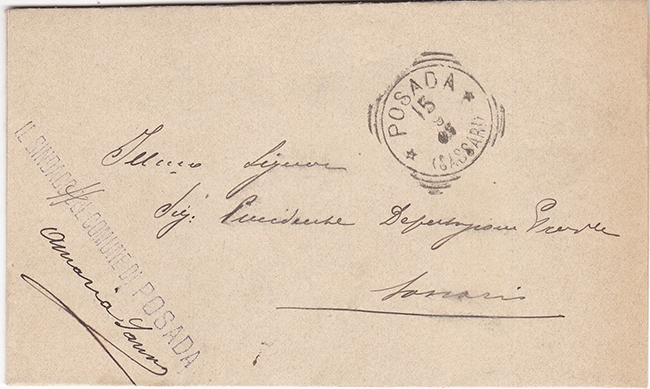 * POSADA *
15
(SASSARI)
Illmo Signor
Sig: Presidente Deputazione Prov.le
Sassari
IL SINDACO DEL COMUNE DI POSADA